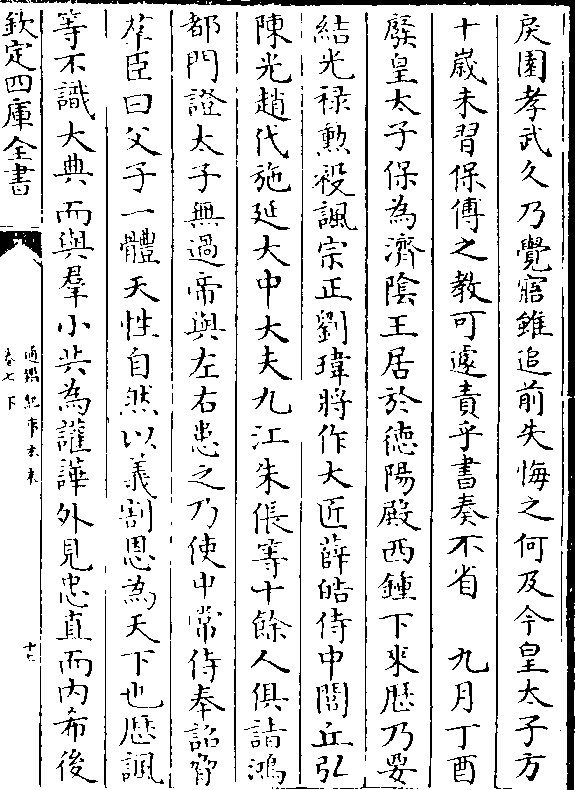 戾園孝武久乃覺寤雖追前失悔之何及今皇太子方
十嵗未習保傅之教可遽責乎書奏不省　九月丁酉
廢皇太子保為濟隂王居於徳陽殿西鍾下來歴乃要
結光禄勲祋諷宗正劉瑋將作大匠薛皓侍中閭丘弘
陳光趙代施延大中大夫九江朱倀等十餘人俱詣鴻
都門證太子無過帝與左右患之乃使中常侍奉詔脅
羣臣曰父子一體天性自然以義割恩為天下也歴諷
等不識大典而與羣小共為讙譁外見忠直而内希後
欽定四庫全書
通鑑紀事本末
卷七下
十七